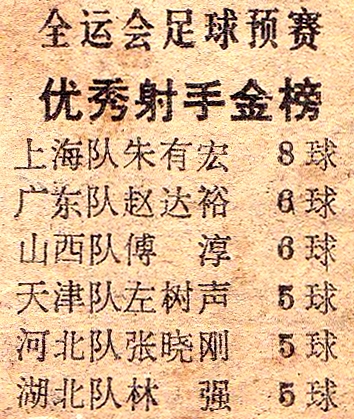 全运会足球预赛
优秀射手金榜
上海队朱有宏 8球
广东队赵达裕 6球
山西队傅 淳 6球
天津队左树声 5球
河北队张晓刚 5球
湖北队林 强 5球